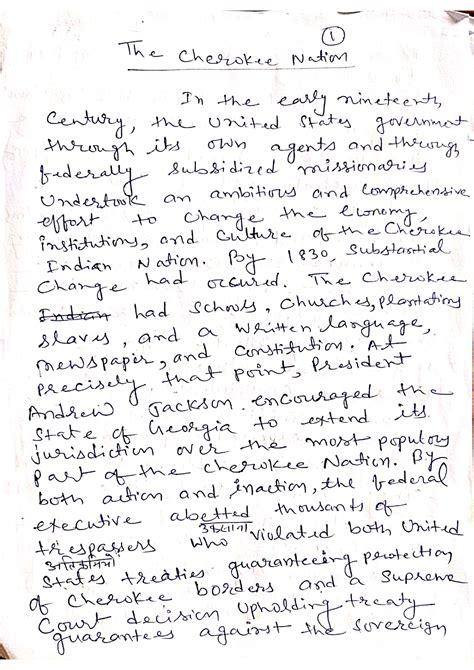 1
The Cherokee Nation
In the early nineteenth
Century, the United States government
through its own agents and through
federally subsidized missionaries
Undertook an ambitious and Comprehensive
effort to Change the Economy,
institutions, and Culture of the Cherokee
Indian Nation. By 1830, Substantial
Change had occured. The Cherokee
Indian had Schools, Churches, plantations
slaves, and a written language,
newspaper, and Constitution. At
precisely that point, President
Andrew Jackson encouraged the
State of Georgia to extend its
jurisdiction over the most populous
part of the Cherokee Nation. By
both action and inaction, the federal
executive abetted thousands of
उकसाना
trespassers who violated both United
अतिक्रमियों
States treaties guaranteeing protection
of Cherokee borders and a Supreme
Court decision upholding treaty
guarantees against the sovereign